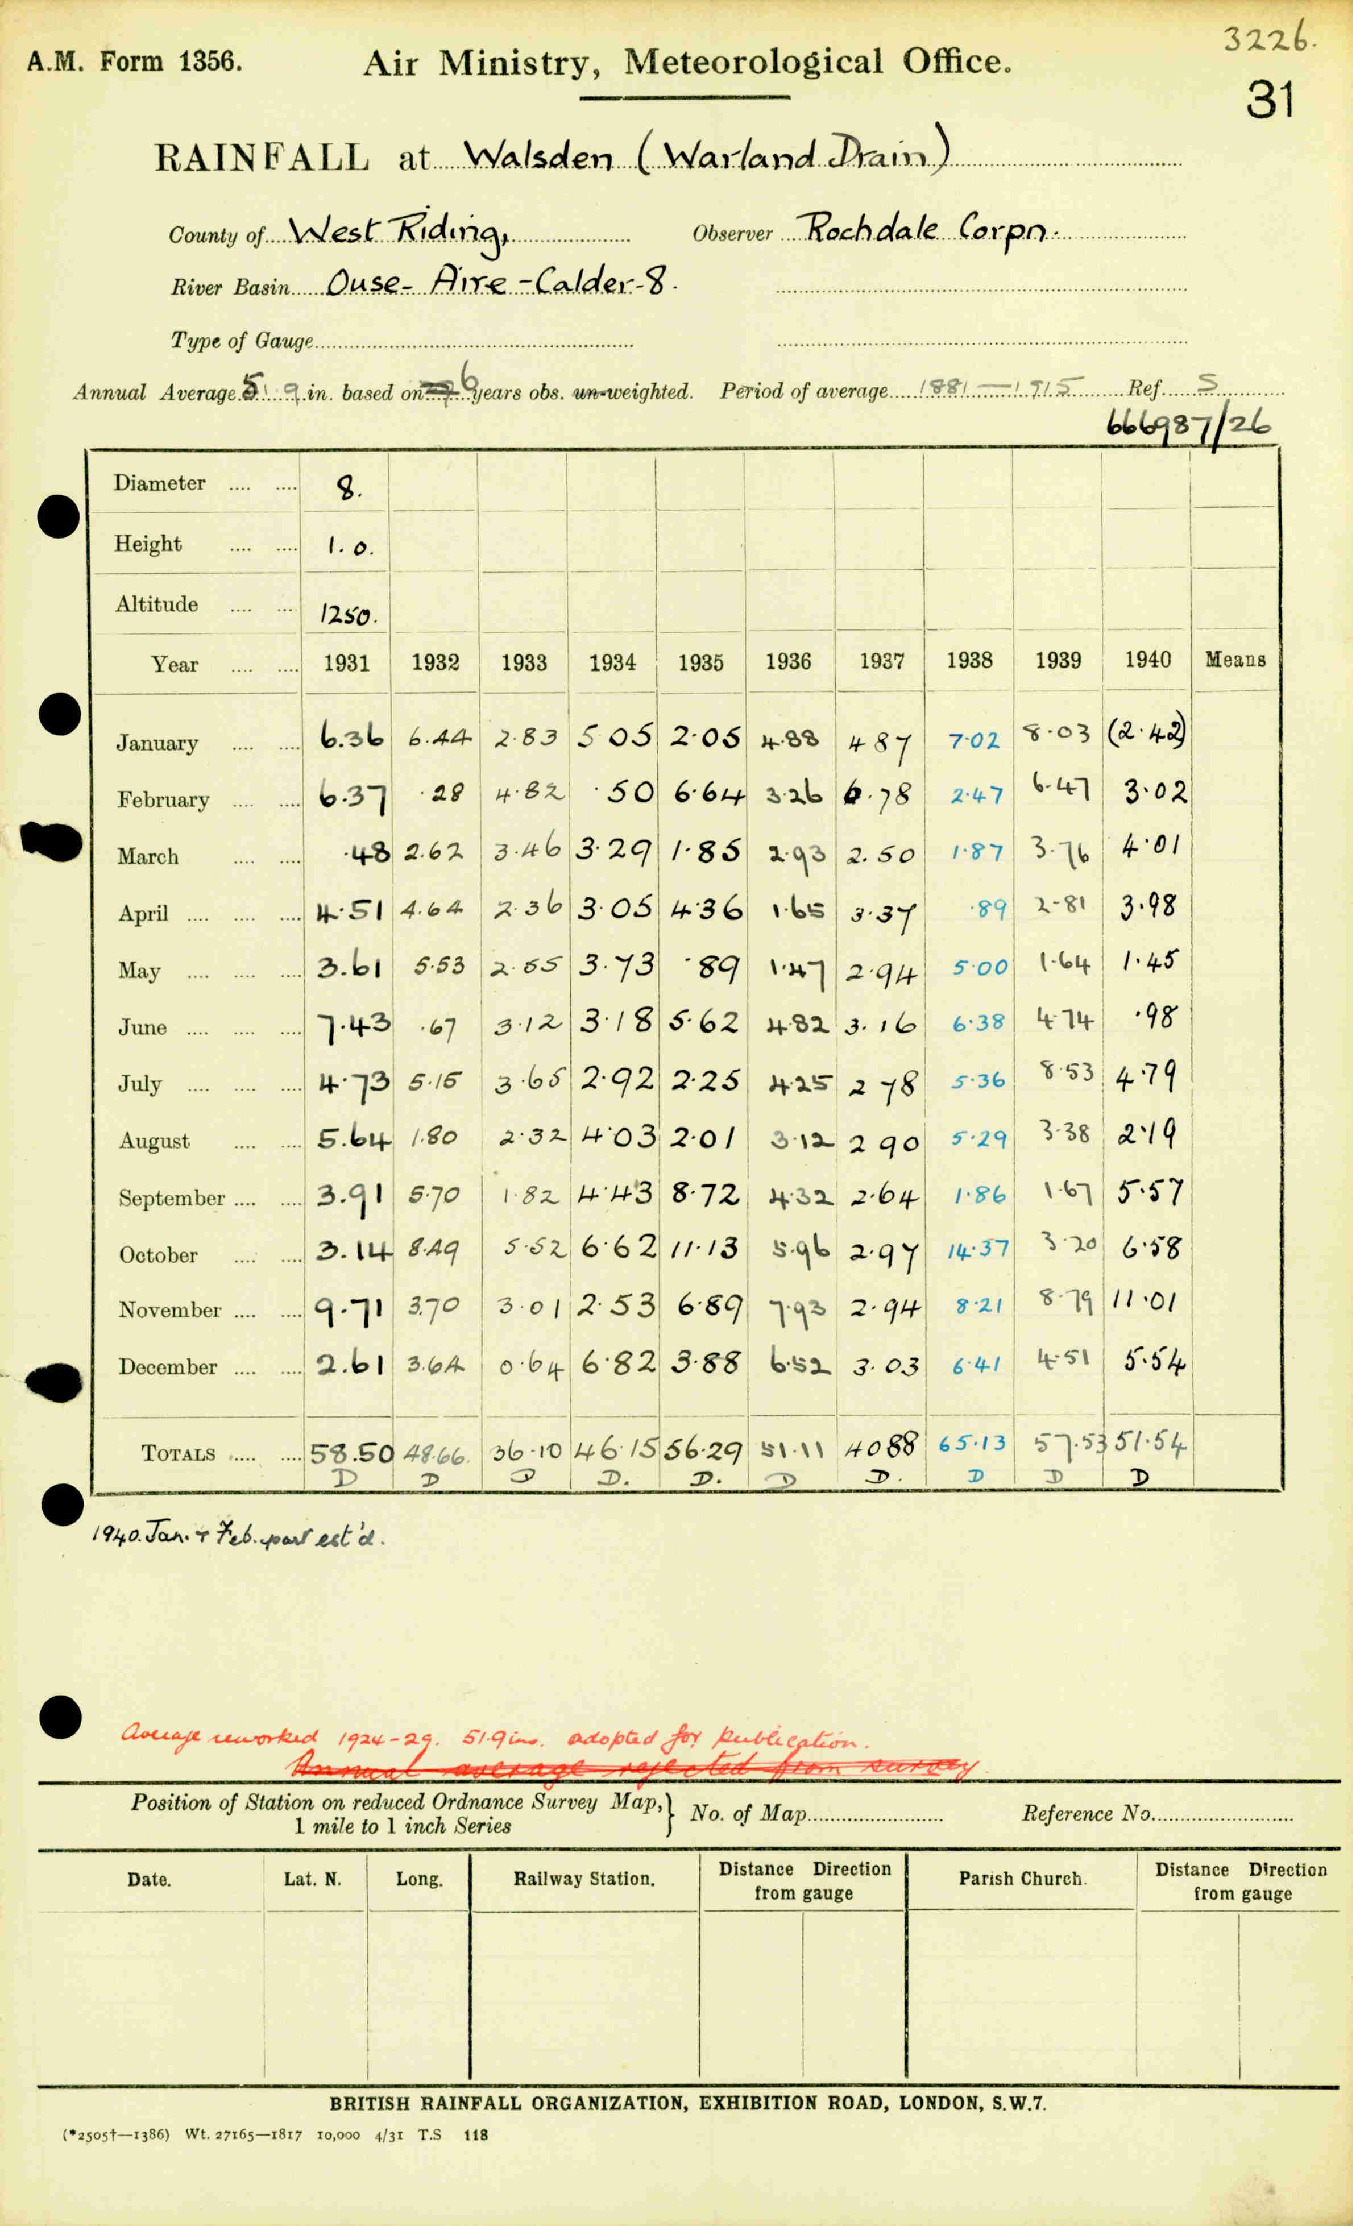 3226.
A.M. Form 1356. Air Ministry, Meteorological Office.
31
RAINFALL at Walsden (Warland Drain)
County of West Riding, Observer Rochdale Corpn.
River Basin Ouse-Aire-Calder-8.
Type of Gauge
Annual Average 51.9 in. based on 6 years obs. un-weighted. Period of average 1881-1915 Ref. S
666987/26
Diameter 8.
Height 1.0.
Altitude 1250.
Year 1931 1932 1933 1934 1935 1936 1937 1938 1939 1940 Means
January 6.36 6.44 2.83 5 05 2.05 4.88 4 87 7.02 8.03 (2.42)
February 6.37 .28 4.82 .50 6.64 3.26 6.78 2.47 6.47 3.02
March .48 2.62 3.46 3.29 1.85 2.93 2.50 1.87 3.76 4.01
April 4.51 4.64 2.36 3.05 4.36 1.65 3.37 .89 2.81 3.98
May 3.61 5.53 2.55 3.73 .89 1.47 2.94 5.00 1.64 1.45
June 7.43 .67 3.12 3.18 5.62 4.82 3.16 6.38 4.74 .98
July 4.73 5.15 3.65 2.92 2.25 4.25 2 78 5.36 8.53 4.79
August 5.64 1.80 2.32 4.03 2.01 3.12 2 90 5.29 3.38 2.19
September 3.91 5.70 1.82 4.43 8.72 4.32 2.64 1.86 1.67 5.57
October 3.14 8.49 5.52 6.62 11.13 5.96 2.97 14.37 3.20 6.58
November 9.71 3.70 3.01 2.53 6.89 7.93 2.94 8.21 8.79 11.01
December 2.61 3.64 0.64 6.82 3.88 6.52 3.03 6.41 4.51 5.54
TOTALS 58.50 48.66 36.10 46.15 56.29 51.11 40 88 65.13 57.53 51.54
D D D D. D. D D. D D D
1940. Jan. + Feb. part est'd.
Average reworked 1924-29. 51.9 ins. adopted for publication.
Annual average rejected from survey.
Position of Station on reduced Ordnance Survey Map, } No. of Map Reference No.
1 mile to 1 inch Series
Date. Lat. N. Long. Railway Station. Distance Direction from gauge Parish Church. Distance Direction from gauge
BRITISH RAINFALL ORGANIZATION, EXHIBITION ROAD, LONDON, S.W.7.
(*2505†—1386) Wt. 27165—1817 10,000 4/31 T.S 118